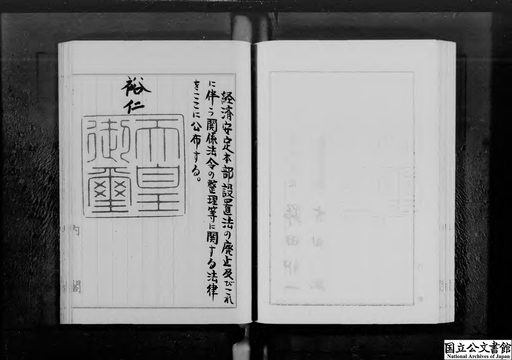 経済安定本部設置法の廃止及びこれ
に伴う関係法令の整理等に関する法律
をここに公布する。
裕仁
天皇
御璽
内閣
国立公文書館
National Archives of Japan